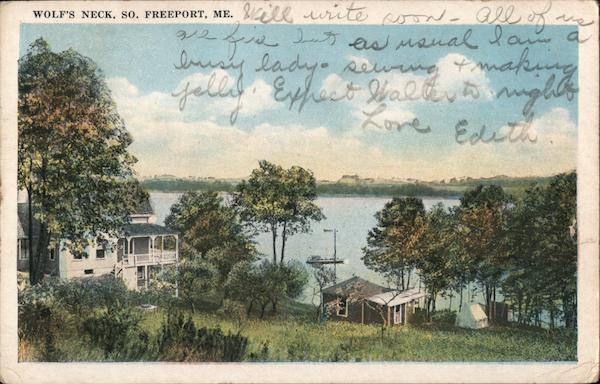 WOLF'S NECK, SO. FREEPORT, ME.
Will write soon - All of us
are fine but as usual I am a
busy lady - sewing + making
jelly. Expect Walter to-night
Love Edith.